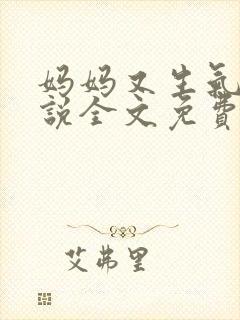 妈妈又生氣
說全文免費
艾弗里